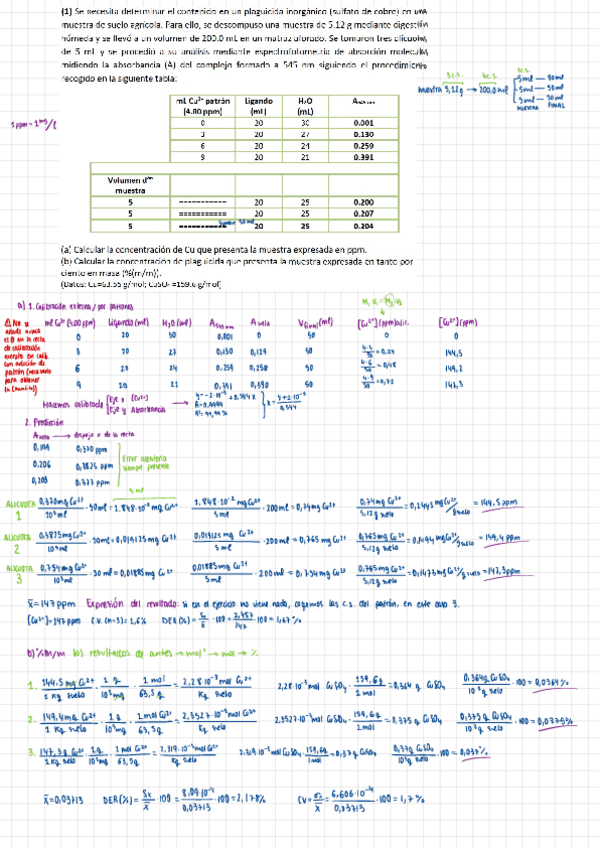 (1) Se necesita determinar el contenido en un plaguicida inorgánico (sulfato de cobre) en una
muestra de suelo agrícola. Para ello, se descompuso una muestra de 5.12 g mediante digestión
húmeda y se llevó a un volumen de 200.0 mL en un matraz aforado. Se tomaron tres alícuotas
de 5 mL y se procedió a su análisis mediante espectrofotometría de absorción molecular
midiendo la absorbancia (A) del complejo formado a 545 nm siguiendo el procedimiento
recogido en la siguiente tabla:
muestra 5,12g → 200.0 ml
5ml — 50ml
5ml — 50ml
5ml — 50ml
MUESTRA FINAL
mL Cu2+ patrón (4.00 ppm) Ligando (mL) H2O (mL)
0 20 30 0.001
3 20 27 0.130
6 20 24 0.259
9 20 21 0.391
Volumen muestra
5 ----------- 20 25 0.200
5 =========== 20 25 0.207
5 20 25 0.204
(a) Calcular la concentración de Cu que presenta la muestra expresada en ppm.
(b) Calcular la concentración de plaguicida que presenta la muestra expresada en tanto por
ciento en masa (%(m/m)).
(Datos: Cu=63.55 g/mol; CuSO4 =159.6 g/mol)
a) 1. Calibración externa / por patrones
ml Cu2+ (4.00 ppm) Ligando (ml) H2O (ml) Vfinal (ml) [Cu2+] (ppm)
0 20 30 0,001 0 50 0 0
3 20 27 0,130 0,129 50 4·3/50 = 0,24 144,5
6 20 24 0,259 0,258 50 4·6/50 = 0,48 149,2
9 20 21 0,391 0,390 50 4·9/50 = 0,72 147,3
Hacemos calibrado
Eje x [Cu2+]
Eje y Absorbancia
2. Predicción
→ despejo x de la recta
0,199 0,370 ppm
0,206 0,3825 ppm
0,203 0,377 ppm
Error aleatorio
siempre presente
5 ml
ALICUOTA 1 0,370mg Cu2+/10³ml · 50ml = 1.848·10-2 mg Cu2+ 1.848·10-2 mg Cu2+/5ml · 200ml = 0,74mg Cu2+ 0,74mg Cu2+/5,12g suelo = 0,1445 mg Cu2+/g suelo = 144,5 ppm
ALICUOTA 2 0,3825mg Cu2+/10³ml · 50ml = 0,019125 mg Cu2+ 0,019125 mg Cu2+/5ml · 200ml = 0,765 mg Cu2+ 0,765mg Cu2+/5,12g suelo = 0,1494 mg Cu2+/g suelo = 149,4 ppm
ALICUOTA 3 0,754mg Cu2+/10³ml · 50ml = 0,01885mg Cu2+ 0.01885mg Cu2+/5ml · 200ml = 0,754mg Cu2+ 0,765mg Cu2+/5,12g suelo = 0,1473mg Cu2+/g suelo = 147,3ppm
x̄ = 147ppm Expresión del resultado: si en el ejercicio no viene nada, cogemos las c.s. del patrón, en este caso 3.
[Cu2+] = 147 ppm C.V. (n=3) = 1,6% DER(%) = · 100 = 1,67%
b) %m/m los resultados de antes → mol → → %
1. 144,5 mg Cu2+/1 kg suelo · 1 g/10³mg · 1 mol Cu2+/63,5g = 2,28·10-3 mol Cu2+/kg suelo 2,28·10-3 mol CuSO4 · 159,6g/1 mol = 0,364 g CuSO4 0,364g CuSO4/10³g suelo · 100 = 0,0364%
2. 149,4mg Cu2+/1 kg suelo · 1g/10³mg · 1mol Cu2+/63,5g = 2,3527·10-3mol Cu2+/kg suelo 2,3527·10-3mol CuSO4 · 159,6g/1mol = 0,375 g CuSO4 0,375g CuSO4/10³g suelo · 100 = 0,0375%
3. 147,3g Cu2+/1 kg suelo · 1g/10³mg · 1 mol Cu2+/63,5g = 2.319·10-3mol Cu2+/kg suelo 2.319·10-3mol CuSO4 · 159,6g/1mol = 0,37g CuSO4 0,37g CuSO4/10³g suelo · 100 = 0,037%
x̄ = 0,03713 DER(%) = Sx/x̄ · 100 = 8,09·10-4/0,03713 · 100 = 2,178% CV = · 100 = 6,606·10-4/0,03713 · 100 = 1,7%